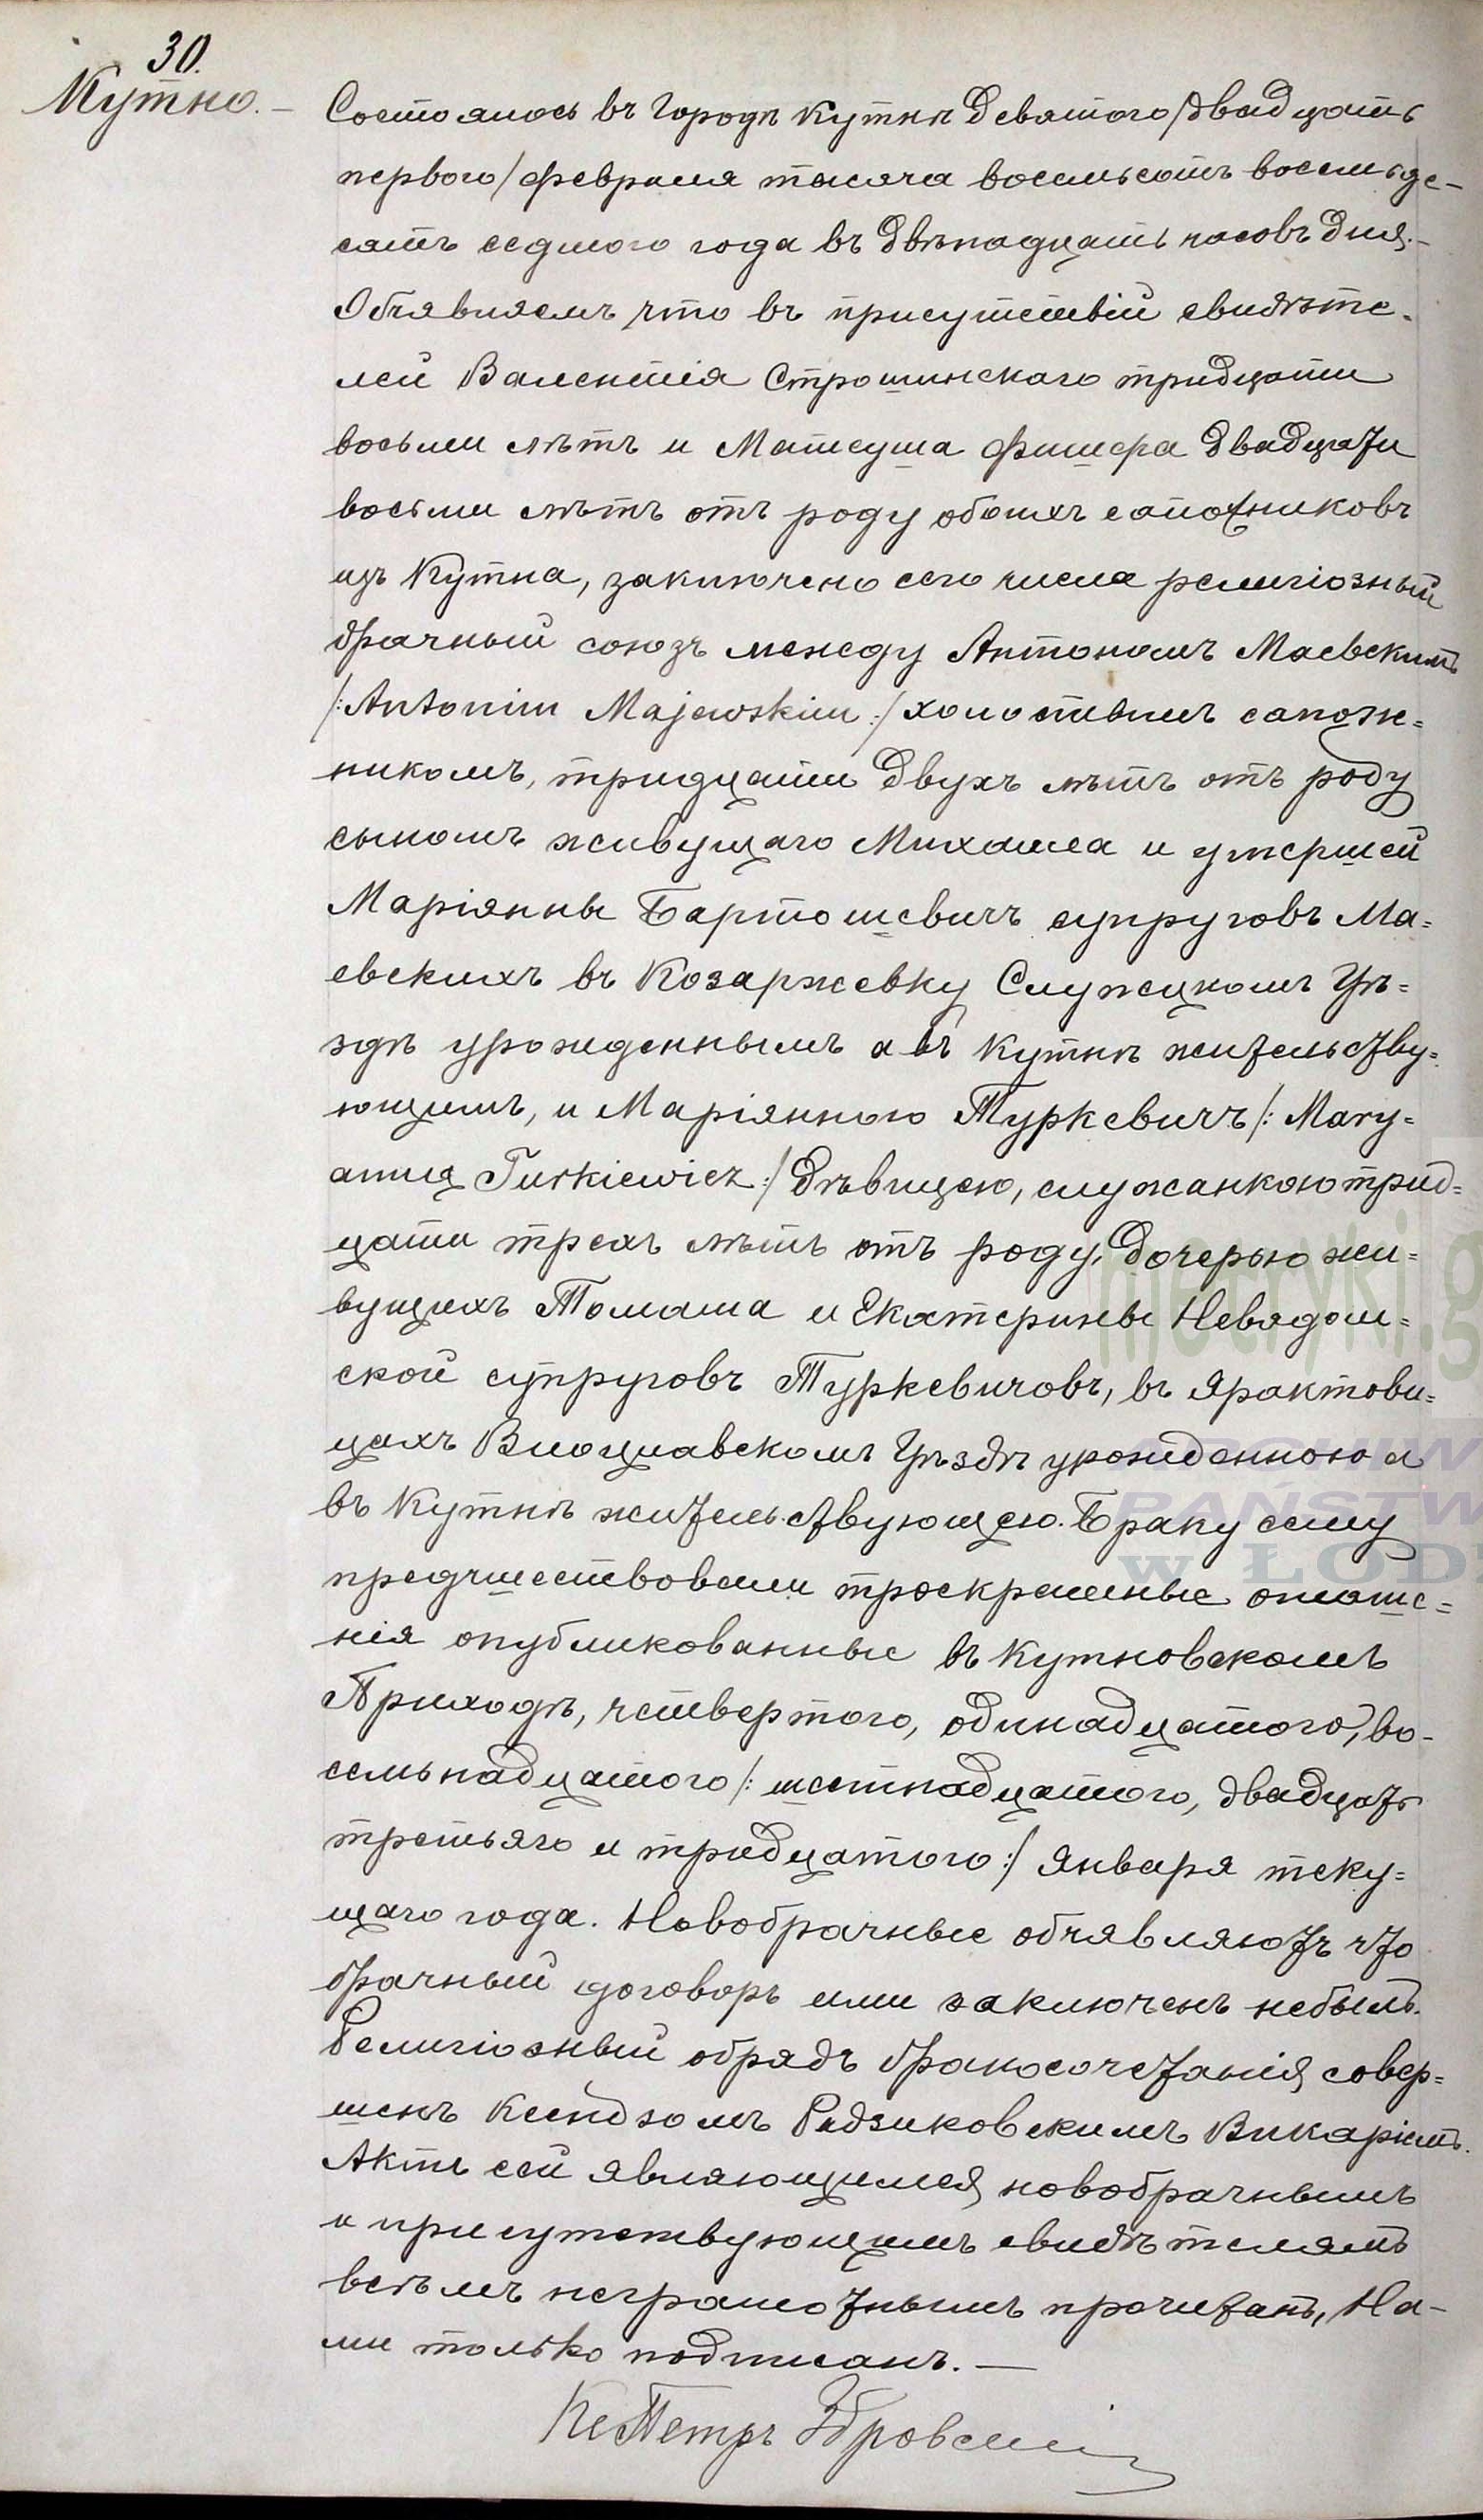 30.
Кутно. —
Состоялось въ Городѣ Кутнѣ Девятого /двадцать
первого/ февраля тысяча восемьсотъ восемьде-
сятъ седмого года въ двѣнадцать часовъ дня. -
Объявляемъ что въ присутствій свидѣте-
лей Валентія Строшинскаго тридцати
восьми лѣтъ и Матеуша Фишера двадцати
восьми лѣтъ отъ роду обоихъ сапожниковъ
изъ Кутна, заключено сего числа религіозный
брачный союзъ между Антономъ Маевскимъ
/: Antonim Majewskim :/ холостымъ сапож=
никомъ, тридцати двухъ лѣтъ отъ роду
сыномъ живущаго Михаила и умершей
Маріянны Бартошевичъ супруговъ Ма=
евскихъ въ Козаржевку Слупецкомъ Уѣ=
здѣ урожденнымъ а въ Кутнѣ жительству=
ющимъ, и Маріянною Туркевичъ /: Mary=
anną Turkiewicz :/ Дѣвицею, служанкою трид=
цати трехъ лѣтъ отъ роду, дочерью жи=
вущихъ Томаша и Екатерины Невядом=
ской супруговъ Туркевичовъ, въ Ярактови=
цахъ Влоцлавскомъ Уѣздѣ урожденною а
въ Кутнѣ жительствующею. Браку сему
предчшествовали троекратные оглаше=
нія опубликованные въ Кутновскомъ
Приходѣ, четвертого, одинадцатого, во-
семьнадцатого /: шестнадцатого, двадцать
третьяго и тридцатого :/ Января теку=
щаго года. Новобрачные объявляютъ что
брачный договоръ ими заключенъ небылъ.
Религіозный обрядъ бракосочетанія совер=
шенъ Ксендзомъ Радзиковскимъ Викаріемъ.
Актъ сей являющимся новобрачнымъ
и присутствующимъ свидѣтелямъ
всѣмъ неграмотнымъ прочитанъ, На-
ми только подписанъ. —
Кс Петръ
metryki.g
ARCHIW
PAŃSTW
w ŁODZ